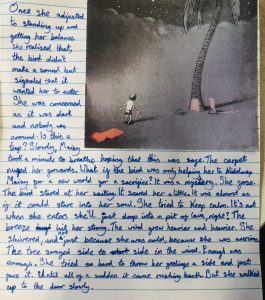 Once she adjusted
to standing up and
getting her balance
she realised that,
the bird didn't
make a sound but
signaled that it
wanted her to enter.
She was concerned
as it was dark
and nobody was
around. Is this a
trap? Slowly, Maisy
took a minute to breathe hoping that this was safe. The carpet
nudged her forwards. What if the bird was only helping her to kiddnap
Maisy for a new world for a sacrifice? It was a mystery. She froze.
The bird stared at her waiting. It scared her a little. It was almost as
if it could stare into her soul. She tried to keep calm. It's not
when she enters she'll just drop into a pit of lava, right? The
breeze hit her strong. The wind grew heavier and heavier. She
shivered, and not just because she was cold, because she was anxious.
The tree swayed side to side in the wind. Enough was
enough. She tried so hard to throw her feelings a side and just
face it. Until all of a sudden it came rushing back. But she walked
up to the door slowly.